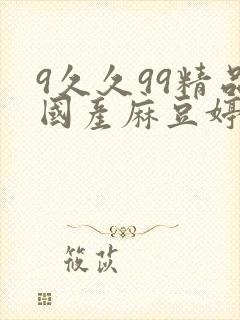 9久久99精品
國産麻豆婷
筱苡